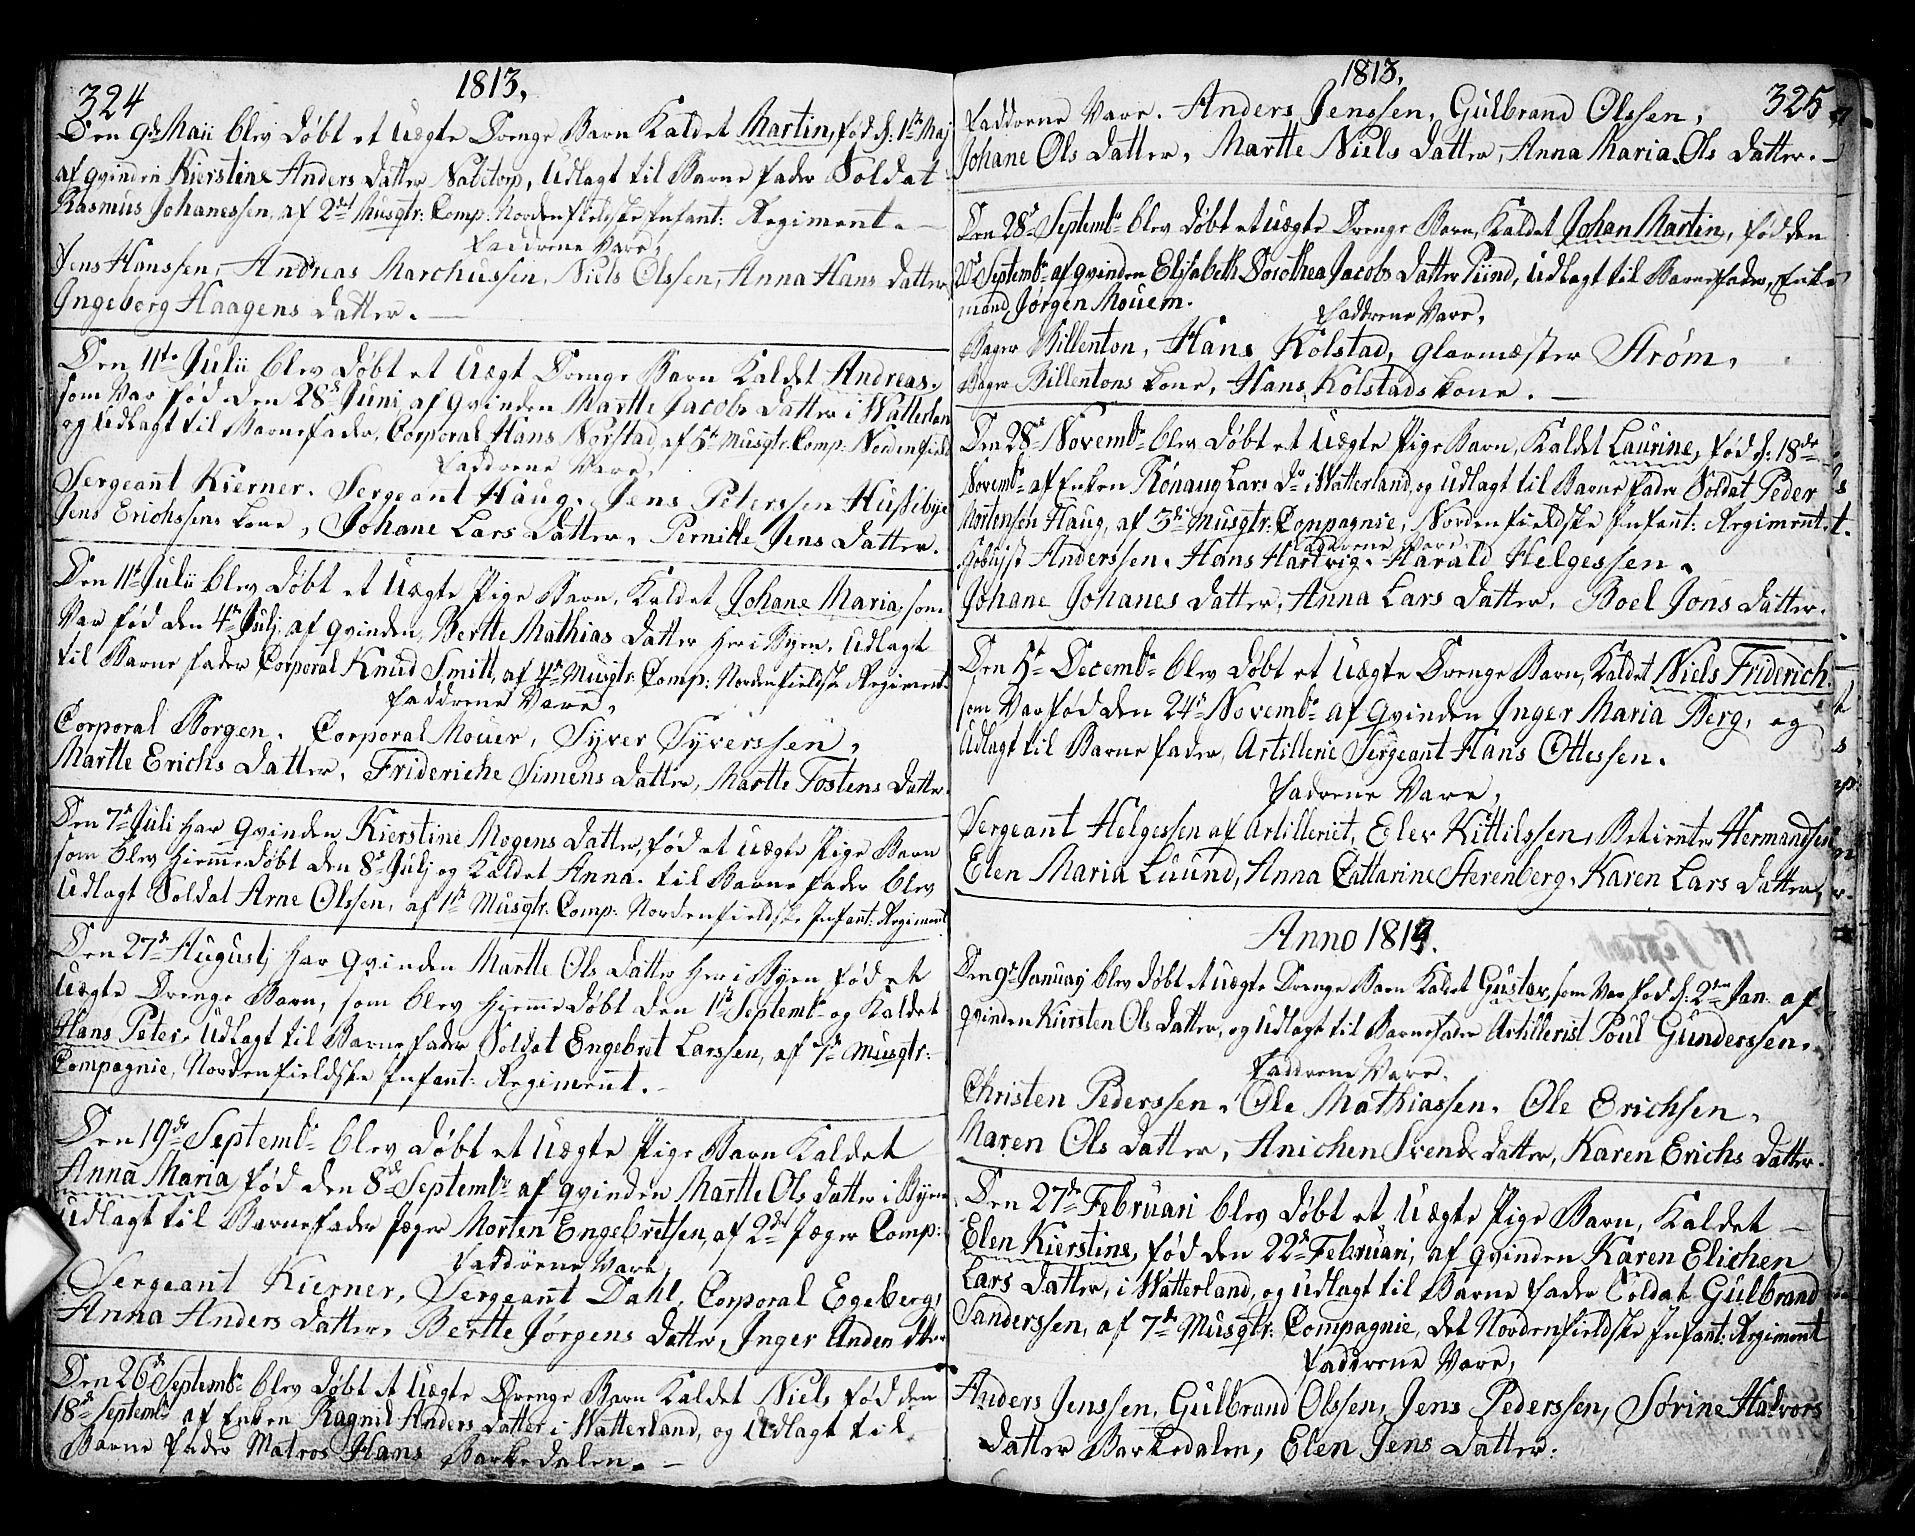 324
1813,
Den 9de Maii blev døbt et Uægte Drenge Barn Kaldet Martin, fød d: 1ste Maj
af qvinden Kierstine Anders datter Nabetorp, Udlagt til Barne fader Soldat
Rasmus Johanessen, af 2det Musqtr: Comp: Nordenfieldske Infant: Regiment. —
Faddrene Vare,
Jens Hanssen, Andreas Marchussen, Niels Olssen, Anna Hans datter
Ingeborg Haagens datter. —
Den 11te Julii blev døbt et Uægt Drenge Barn Kaldet Andreas,
som Var fød den 28de Juni af qvinden Martte Jacobs datter i Watterland
og Udlagt til Barnefader, Corporal Hans Norstad af 5te Musqtr: Comp: Nordenfield
Faddrene Vare,
Sergeannt Kierner. Sergeant Haug. Jens Peterssen Hussebye
Jens Erichssens kone, Johane Lars datter, Pernille Jens datter.
Den 11te Julii blev døbt et Uægte Pige Barn, Kaldet Johane Maria, som
Var fød den 4de Julj af qvinden, Bertte Mathias datter her i Byen, Udlagt
til Barne fader Corporal Knud Smitt, af 4de Musqtr: Comp: Nordenfieldske Regiment.
Faddrene Vare,
Corporal Borgen. Corporal Mouer, Syver Syverssen,
Martte Erichs datter, Frideriche Simens datter, Martte Tostens datter
Den 7de Juli har qvinden Kierstine Mogens datter, fød et uægte Pige Barn
som blev hiemmedøbt den 8de Julj og Kaldet Anna. til Barne fader blev
Udlagt Soldat Arne Olssen, af 1ste Musqtr: Comp: Nordenfieldske Infant: Regiment
Den 27de Augustj har qvinden Martte Ols datter her i Byen fød et
Uægte Drenge Barn, som blev hjemmedøbt den 11te Septembr og Kaldet
Hans Peter, Udlagt til Barnefader Soldat Engebret Larssen, af 7de Musqtr:
Compagnie, Nordenfieldske Infant: Regiment. —
Den 19de Septembr blev døbt et Uægte Pige Barn Kaldet
Anna Maria, fød den 8de Septembr af qvinden Martte Ols datter i Byen
Udlagt til Barnefader Jæger Morten Engebretsen, af 2det Jæger Comp:
Faddrene Vare,
Sergeant Kierner, Sergeannt Dahl, Corporal Egeberg,
Anna Anders datter, Bertte Jørgens datter, Inger Anders dtter
Den 26de Septembr blev døbt et Uægte Drenge Barn Kaldet Niels fød den
18de Septembr af Enken Ragnil Anders datter i Watterland, og Udlagt til
Barne fader Matros Hans Barkedalen. —
1813,
325
Faddrene Vare. Anders Jenssen, Gulbrand Olssen,
Johane Ols datter, Martte Niels datter, Anna Maria Ols datter. —
Den 28de Septembr blev døbt et uægte Drenge Barn, Kaldet Johan Martin, fød den
Septembr af qvinden Elisabeth Dorothea Jacobs datter Pünd, Udlagt til Barnefader, Enke
mand Jørgen Mouem.
Faddrene Vare,
Bager Billenton, Hans Kolstad, Glarmæster Strøm,
Bager Billentons kone, Hans Kolstads kone. —
Den 28de Novembr blev døbt et Uægte Pige Barn, Kaldet Laurine, fød d: 18de
Novembr af Enken Rønaug Lars Dr i Watterland, og Udlagt til Barne fader Soldat Peder
Mortensen Haug, af 3de Musqtr: Conpagnie, Nordenfieldske Infant: Regimennt.
Faddrene Vare,
Anderssen. Hans Hartvig. Harald Helgessen.
Johane Johanes datter, Anna Lars datter, Boel Jons datter.
Den 5te Decembr blev døbt et Uægte Drenge Barn, Kaldet Niels Friderich,
som Var fød den 24de Novembr af qvinden Inger Maria Berg, og
Udlagt til Barne fader, Artillerie Sergeannt Hans Ottessen.
Fadrene Vare,
Sergeant Helgessen af Artilleriet, Elev Kittilssen, Betiennter Hermandsen
Elen Maria Luund, Anna Cattarine Sterenberg, Karen Lars datter,
Anno 1814.
Den 9de Januarj blev døbt et uægte Drenge Barn Kaldet Gustav, som Var fød d: 2den Jan: af
qvinden Kiersten Ols datter, og Udlagt til Barnefader Artillerist Poul Gunderssen.
Faddrene Vare,
Christen Pederssen, Ole Mathiassen. Ole Erichsen,
Maren Ols datter, Anichen Svends datter, Karen Erichs datter.
Den 27de Februari blev døbt et Uægte Pige Barn, Kaldet —
Elen Kierstine, fød den 22de Februari, af qvinden Karen Elichen
Lars datter, i Watterland, og Udlagt til Barne fader Soldat Gulbrand
Sanderssen, af 7de Musqtr: Compagnie, det Nordenfieldske Infant: Regiment
Faddrene Vare,
Anders Jenssen, Gulbrand Olssen, Jens Pederssen, Sørine Halvors
datter Barkedalen, Elen Jens datter.